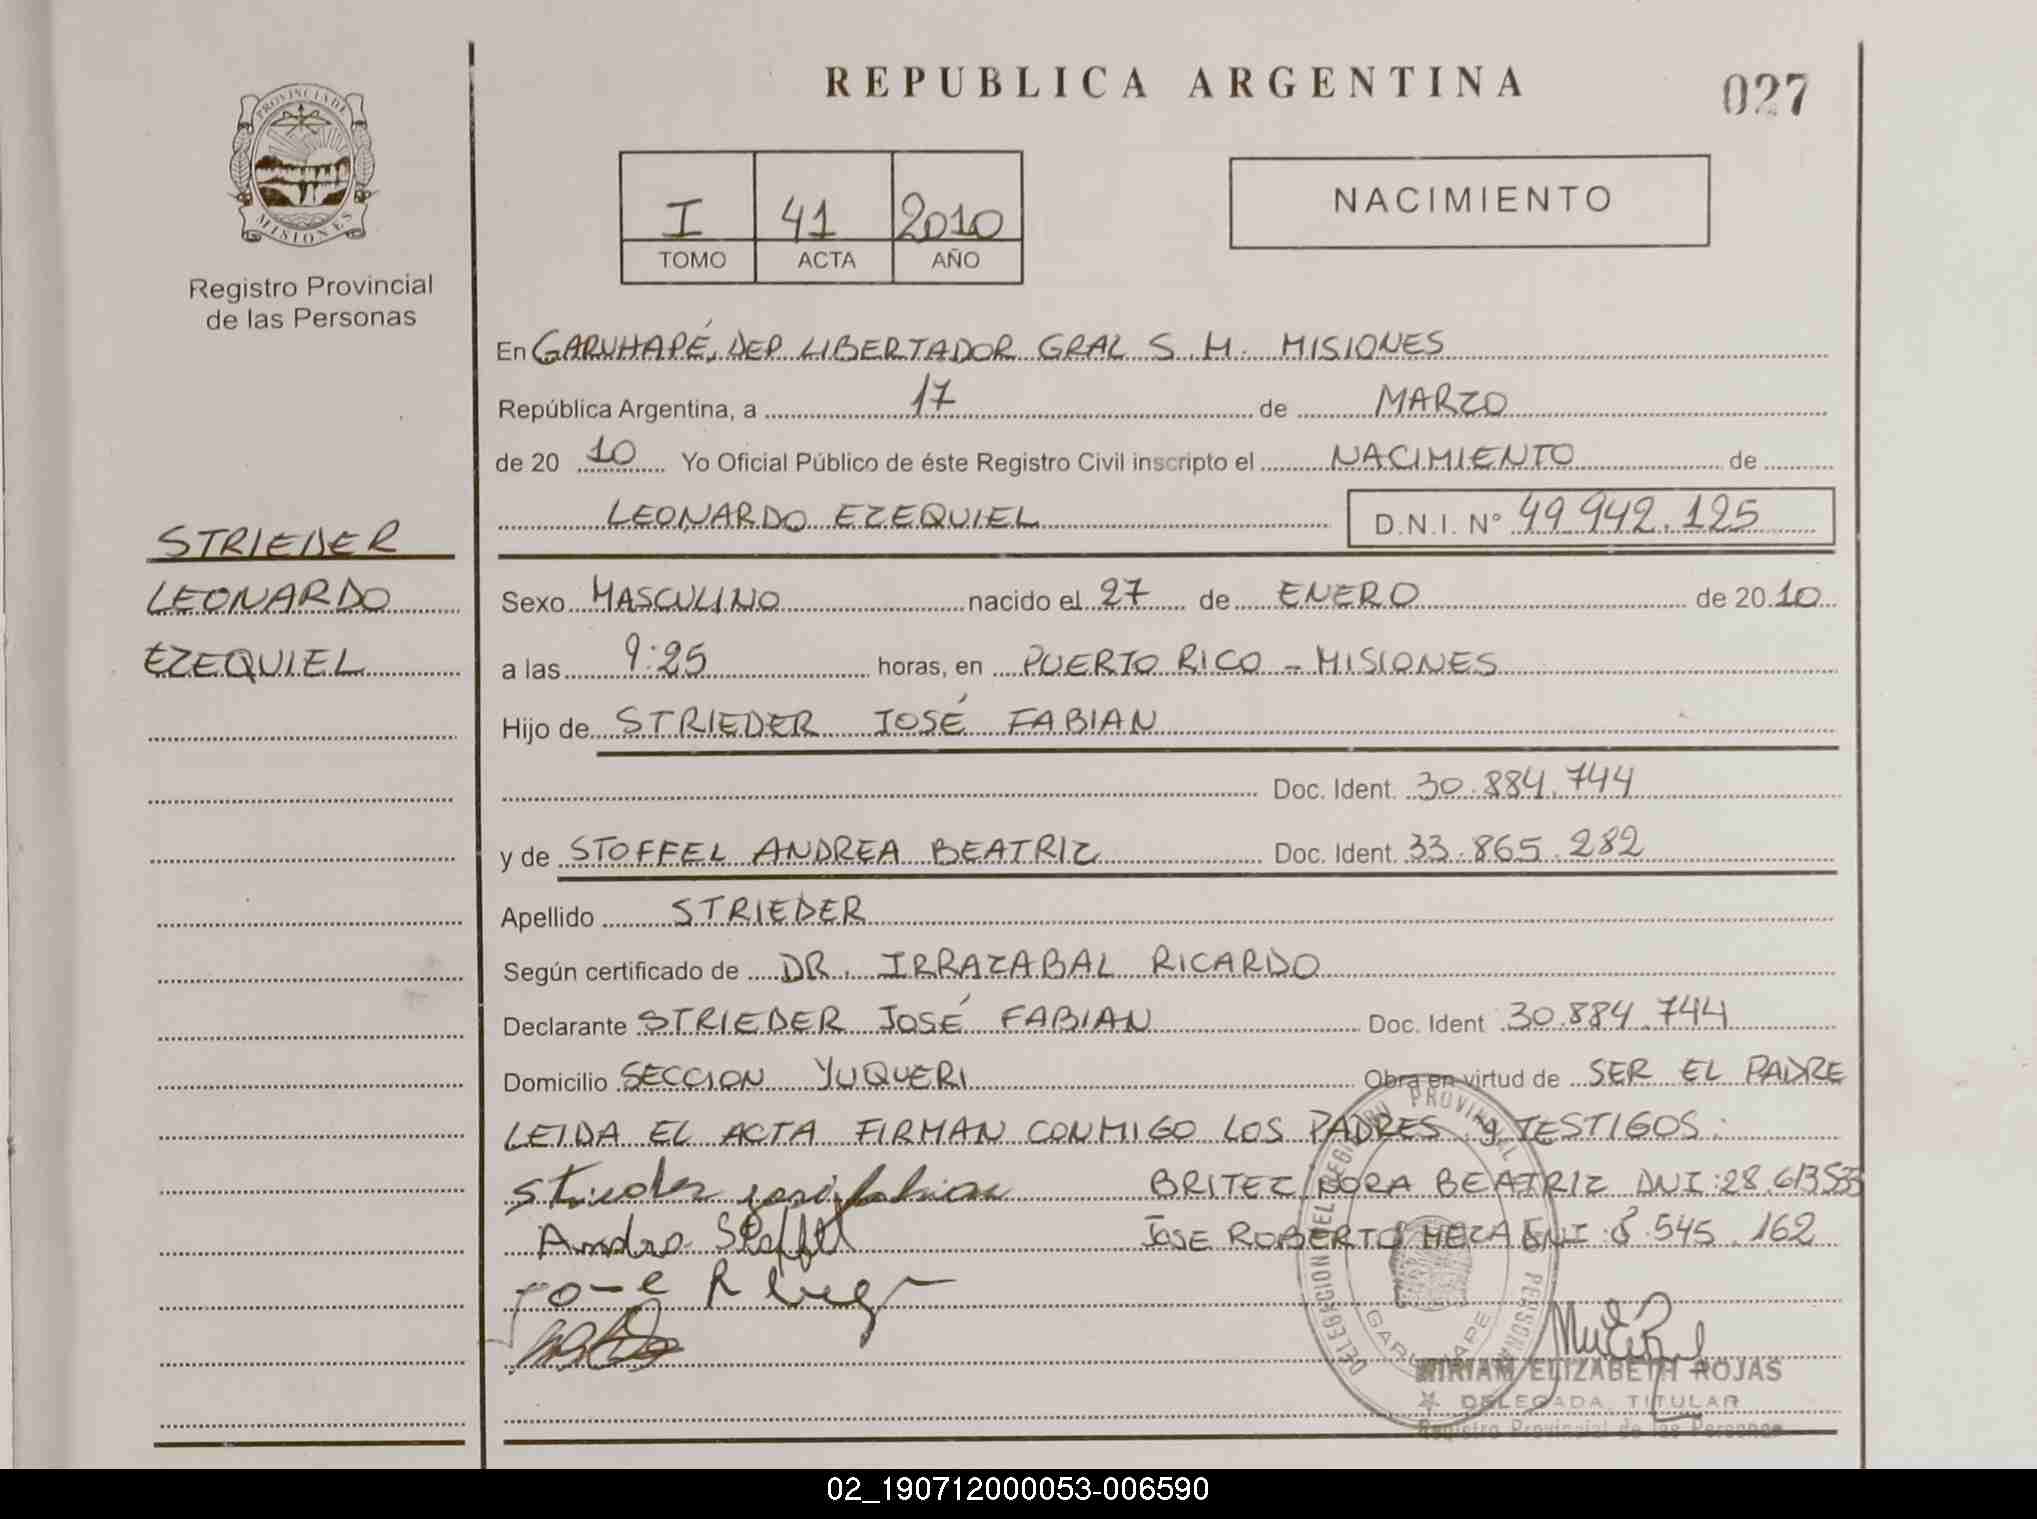 REPUBLICA ARGENTINA
027
PROVINCIA DE
MISIONES
Registro Provincial
de las Personas
I 41 2010
TOMO ACTA AÑO
NACIMIENTO
STRIEDER
LEONARDO
EZEQUIEL
En GARUHAPÉ, DEP LIBERTADOR GRAL S. M. MISIONES
República Argentina, a 17 de MARZO
de 20 10 Yo Oficial Público de éste Registro Civil inscripto el NACIMIENTO de
LEONARDO EZEQUIEL D.N.I. N° 49 942.125
Sexo MASCULINO nacido el 27 de ENERO de 20 10
a las 9:25 horas, en PUERTO RICO - MISIONES
Hijo de STRIEDER JOSÉ FABIAN
Doc. Ident. 30.884.744
y de STOFFEL ANDREA BEATRIZ Doc. Ident. 33.865.282
Apellido STRIEDER
Según certificado de DR. IRRAZABAL RICARDO
Declarante STRIEDER JOSÉ FABIAN Doc. Ident 30.884.744
Domicilio SECCION YUQUERI Obra en virtud de SER EL PADRE
LEIDA EL ACTA FIRMAN CONMIGO LOS PADRES y TESTIGOS:
Strieder jose fabian BRITEZ NORA BEATRIZ DNI: 28.613535
Andrea Stoffel JOSE ROBERTO MEZA DNI: 8.545.162
DELEGACION DEL REGISTRO PROVINCIAL PERSONAS
GARUHAPE
MIRIAM ELIZABETH ROJAS
DELEGADA TITULAR
Registro Provincial de las Personas
02_190712000053-006590